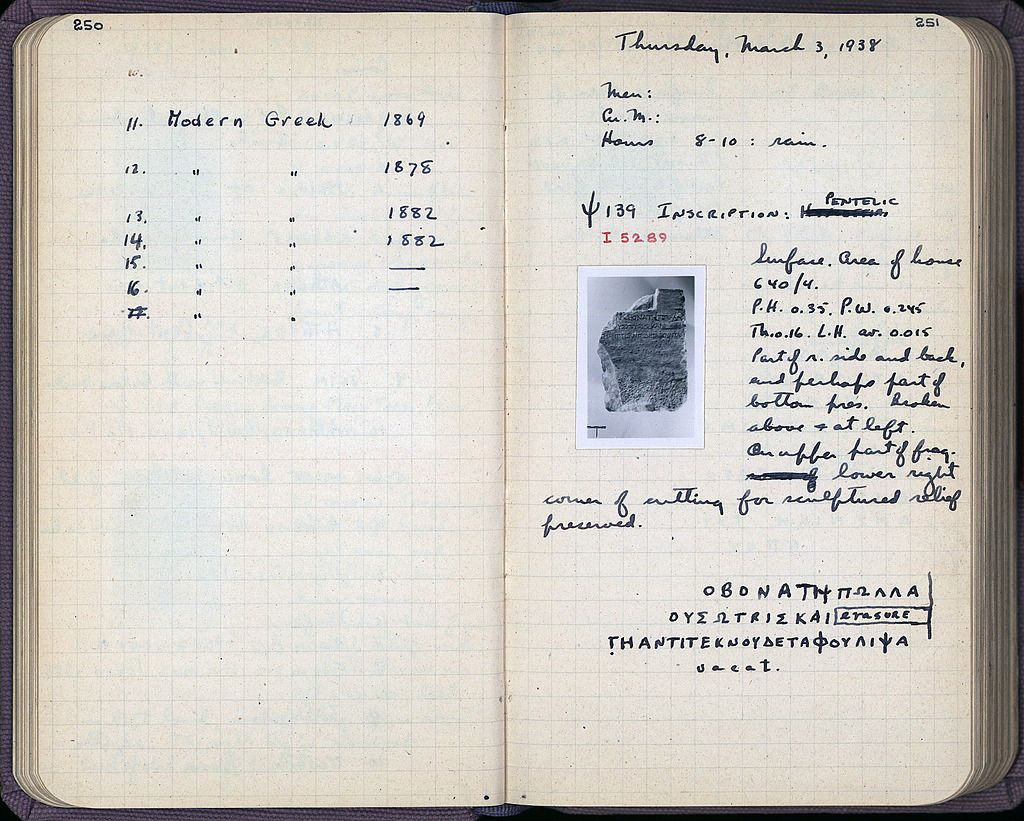 250
10.
11. Modern Greek 1869
12. " " 1878
13. " " 1882
14. " " 1882
15. " " —
16. " " —
17. " "
251
Thursday, March 3, 1938
Men:
Cu. M.:
Hours 8-10: rain.
Ψ 139 INSCRIPTION: PENTELIC
I 5289
Surface. Area of house
640/4.
P.H. 0.35. P.W. 0.245
Th. 0.16. L.H. av. 0.015
Part of r. side and back,
and perhaps part of
bottom pres. Broken
above & at left.
On upper part of frag.
lower right
corner of cutting for sculptured relief
preserved.
ΟΒΟΝΑΤΗΠΩΛΛΑ
ΟΥΣΩΤΡΙΣΚΑΙ erasure
ΓΗΑΝΤΙΤΕΚΝΟΥΔΕΤΑΦΟΥΛΙΨΑ
vacat.